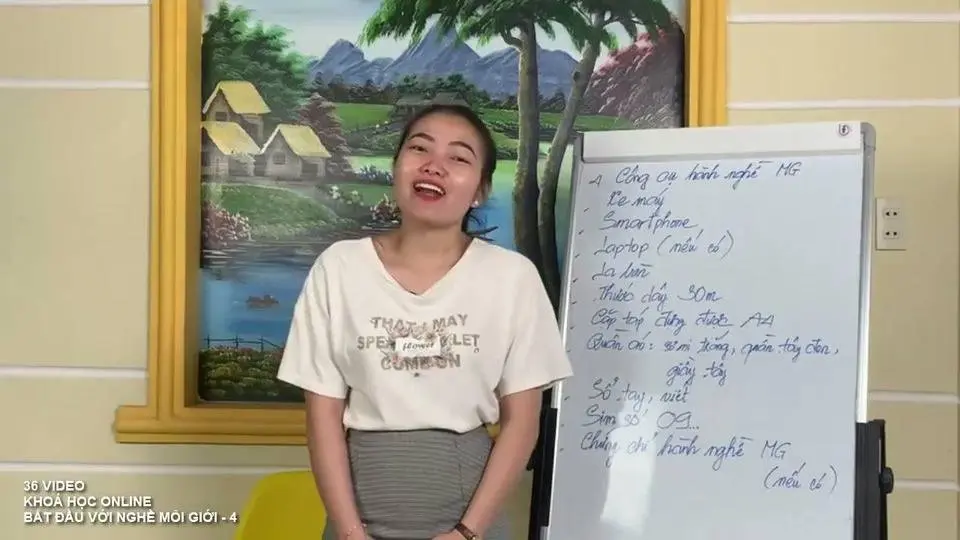 THAT MAY
flower
CUMB ON
1 Công cụ hành nghề MG
- Xe máy
- Smartphone
- Laptop (nếu có)
- La bàn
- Thước dây 30m
- Cặp táp đựng được A4
- Quần áo: sơ mi trắng, quần tây đen,
giầy tây
- Sổ tay, viết
- Sim số 09...
- Chứng chỉ hành nghề MG
(nếu có)
36 VIDEO
KHOÁ HỌC ONLINE
BẮT ĐẦU VỚI NGHỀ MÔI GIỚI - 4